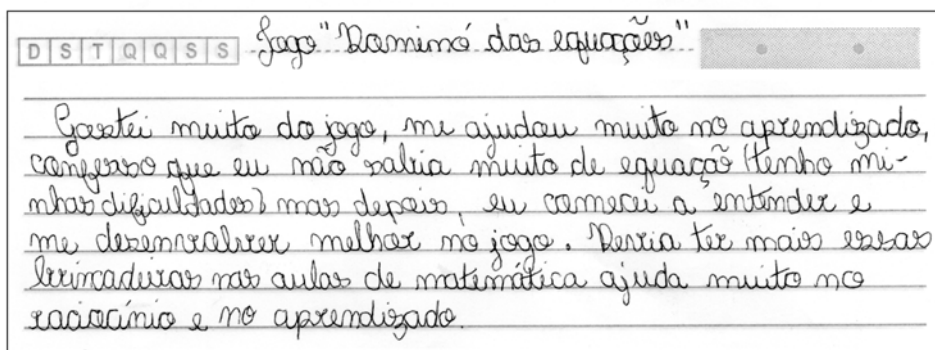 D S T Q Q S S Jogo "Dominó das equações"
Gostei muito do jogo, me ajudou muito no aprendizado,
confesso que eu não sabia muito de equação (tenho mi-
nhas dificuldades) mas depois, eu comecei a entender e
me desenvolver melhor no jogo. Devia ter mais essas
brincadeiras nas aulas de matemática ajuda muito no
raciocínio e no aprendizado.